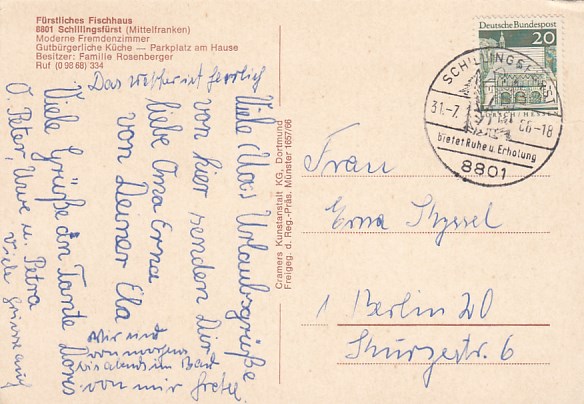 Fürstliches Fischhaus
8801 Schillingsfürst (Mittelfranken)
Moderne Fremdenzimmer
Gutbürgerliche Küche — Parkplatz am Hause
Besitzer: Familie Rosenberger
Ruf (0 98 68) 334
Das Wetter ist herrlich
Viele Urlaubsgrüße
von hier senden Dir
liebe Oma Erna
von Deiner Ela
Viele Grüße an Tante Dores
O. Peter, Uwe u. Petra
Viele
Wir sind
von morgens
bis abends im Bad
von mir
Cramers Kunstanstalt KG, Dortmund
Freigeg. d. Reg.-Präs. Münster 1657/66
Deutsche Bundespost
20
SCHILLINGSFÜRST
31.-7. 66-18
bietet Ruhe u. Erholung
8801
Frau
Erna
1 Berlin 20
6